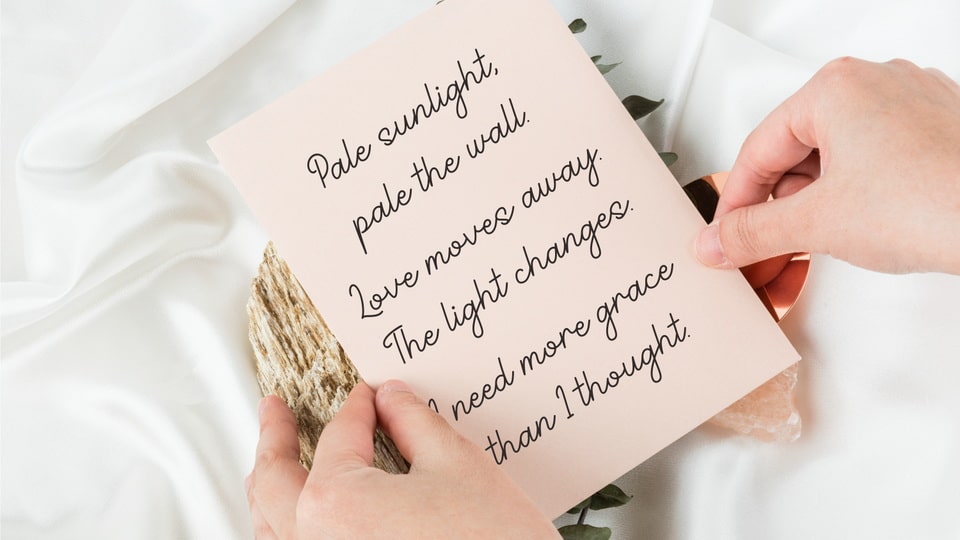 Pale sunlight,
pale the wall.
Love moves away.
The light changes.
I need more grace
than I thought.